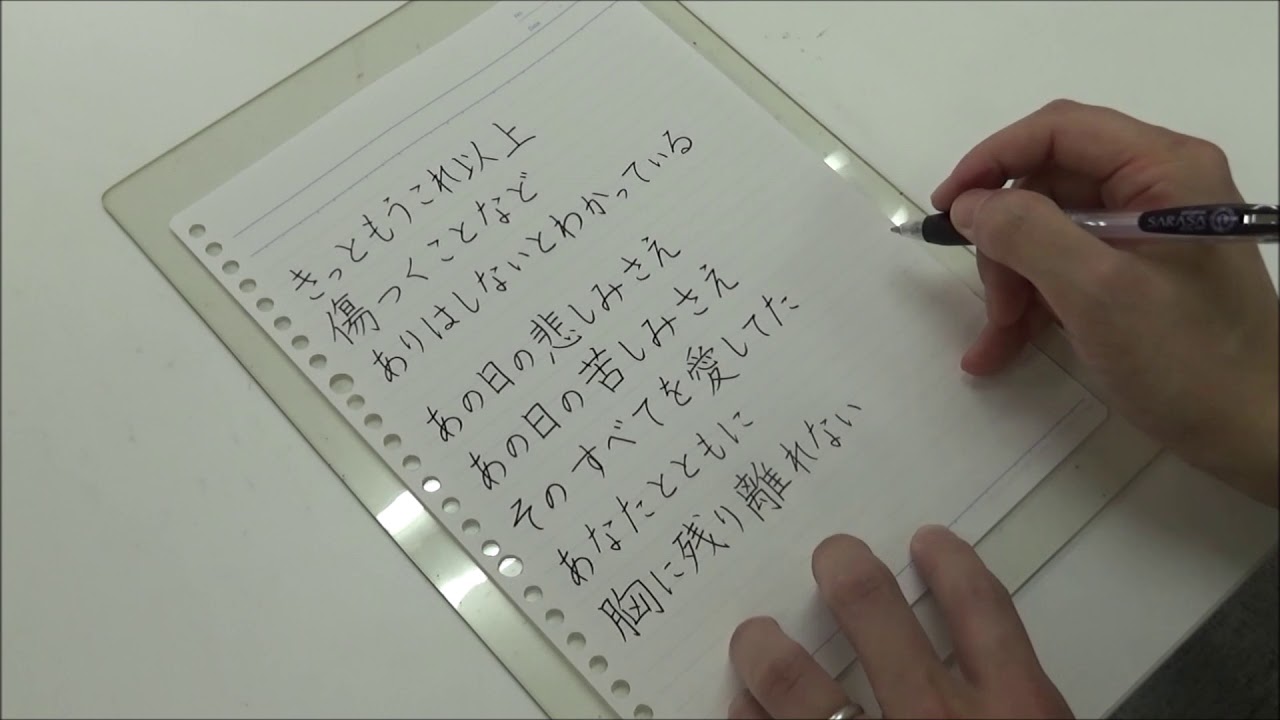 きっともうこれ以上
傷つくことなど
ありはしないとわかっている
あの日の悲しみさえ
あの日の苦しみさえ
そのすべてを愛してた
あなたとともに
胸に残り離れない
No.
Date
SARASA